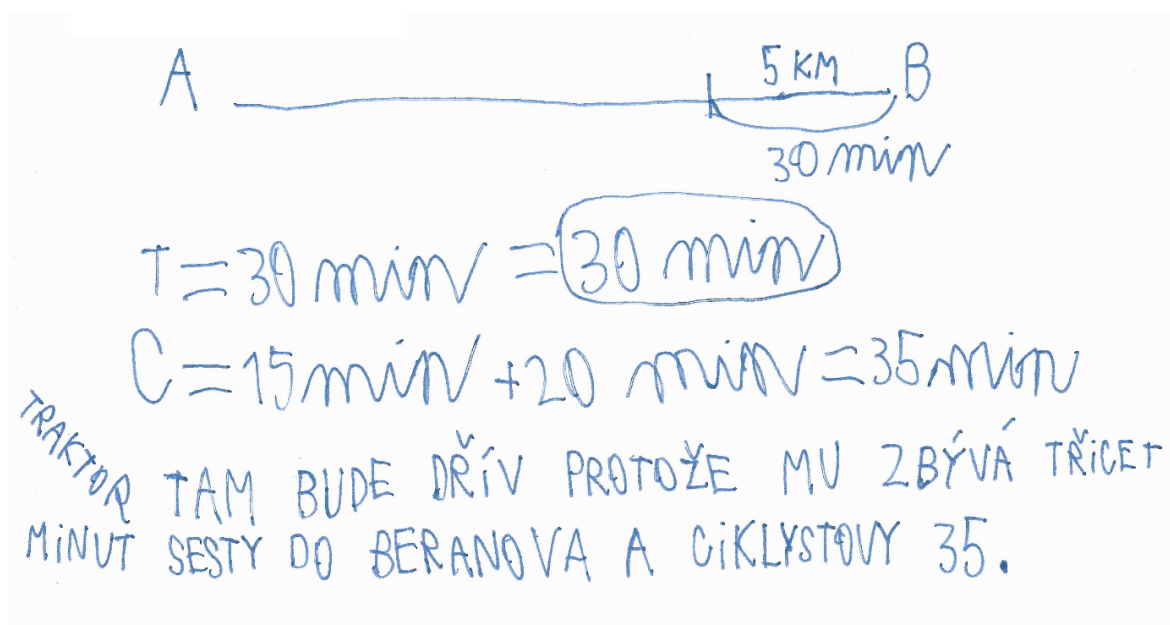 A 5 KM B
30 min
T = 30 min = 30 min
C = 15 min + 20 min = 35 min
TRAKTOR TAM BUDE DŘÍV PROTOŽE MU ZBÝVÁ TŘICET
MINUT SESTY DO BERANOVA A CIKLYSTOVY 35.